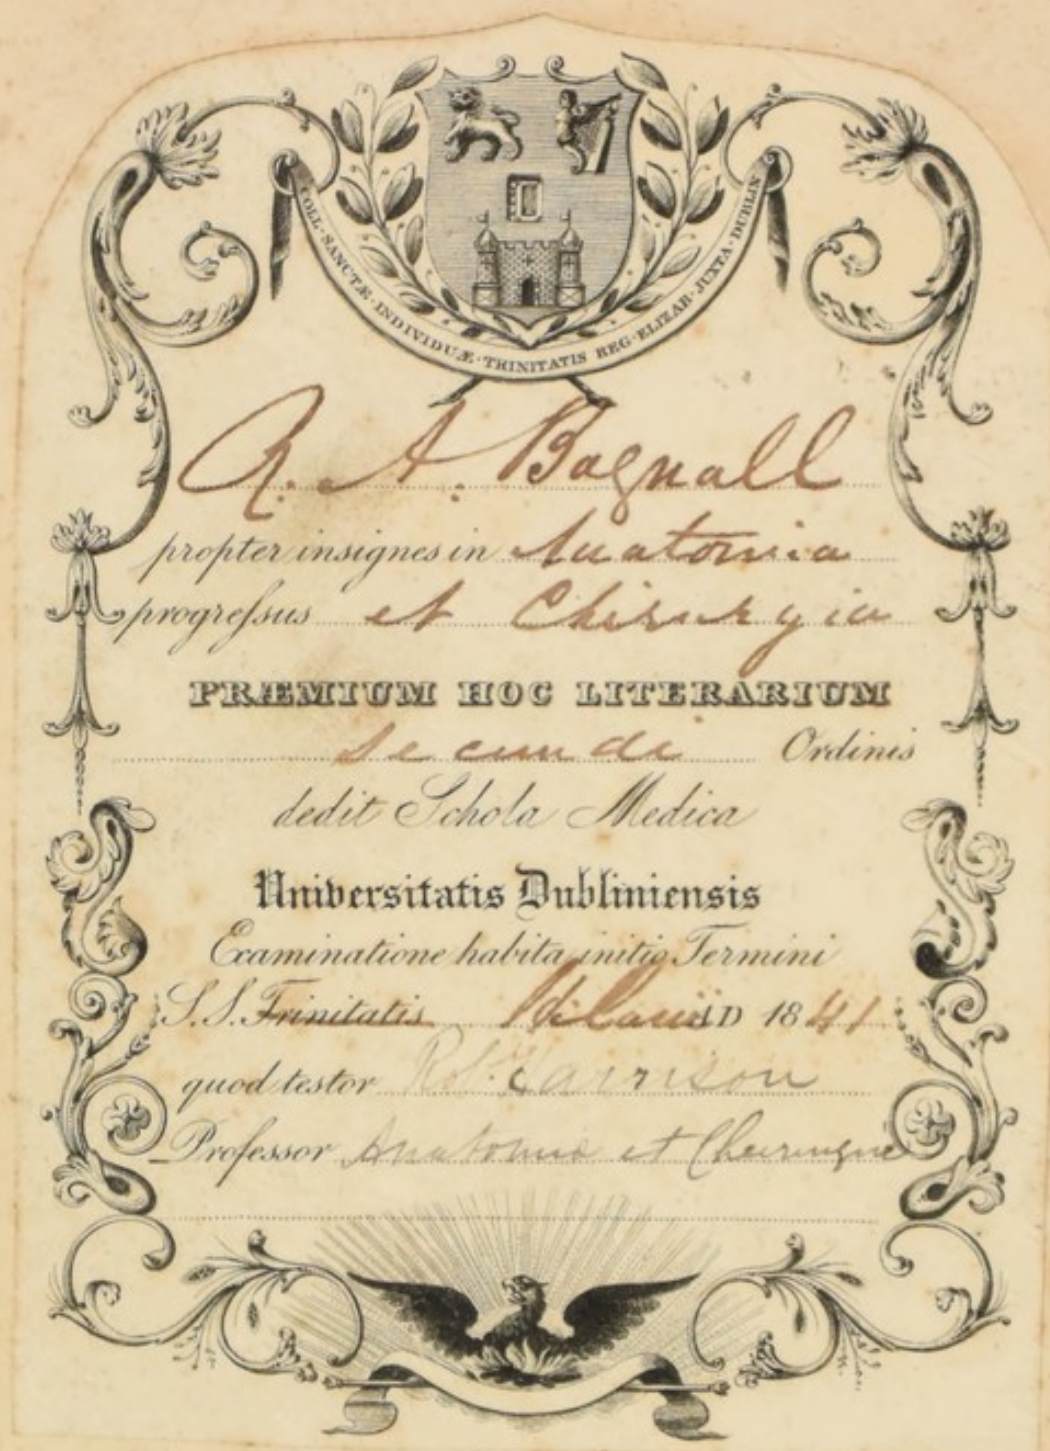 COLL · SANCTÆ · INDIVIDUÆ · TRINITATIS REG · ELIZAB · JUXTA · DUBLIN
R. A. Bagnall
propter insignes in Anatomia
progressus et Chirurgia
PRÆMIUM HOC LITERARIUM
secundi Ordinis
dedit Schola Medica
Universitatis Dubliniensis
Examinatione habita initio Termini
S.S. Trinitatis Hilarii AD 1841
quod testor Rt. Harrison
Professor Anatomiæ et Chirurgiæ